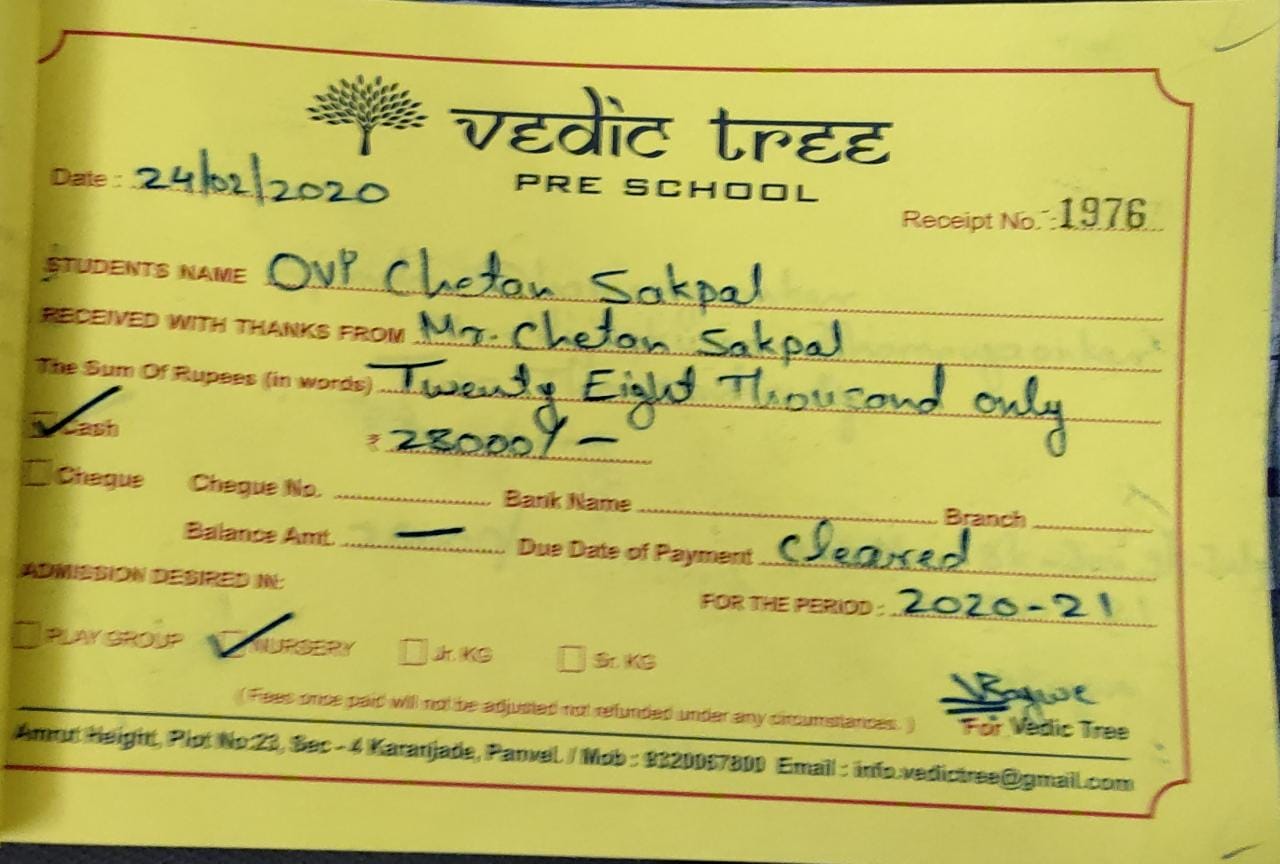 vedic tree
PRE SCHOOL
Date : 24/02/2020
Receipt No. : 1976
STUDENTS NAME Ovi Chetan Sakpal
RECEIVED WITH THANKS FROM Mr. Chetan Sakpal
The Sum Of Rupees (in words) Twenty Eight Thousand only
Cash ₹ 28000/-
Cheque Cheque No. Bank Name Branch
Balance Amt. — Due Date of Payment Cleared
ADMISSION DESIRED IN:
FOR THE PERIOD : 2020-21
PLAY GROUP NURSERY Jr. KG Sr. KG
( Fees once paid will not be adjusted not refunded under any circumstances. )
For Vedic Tree
Amrut Height, Plot No:23, Sec - 4 Karanjade, Panvel. / Mob : Email : info.vedictree@gmail.com